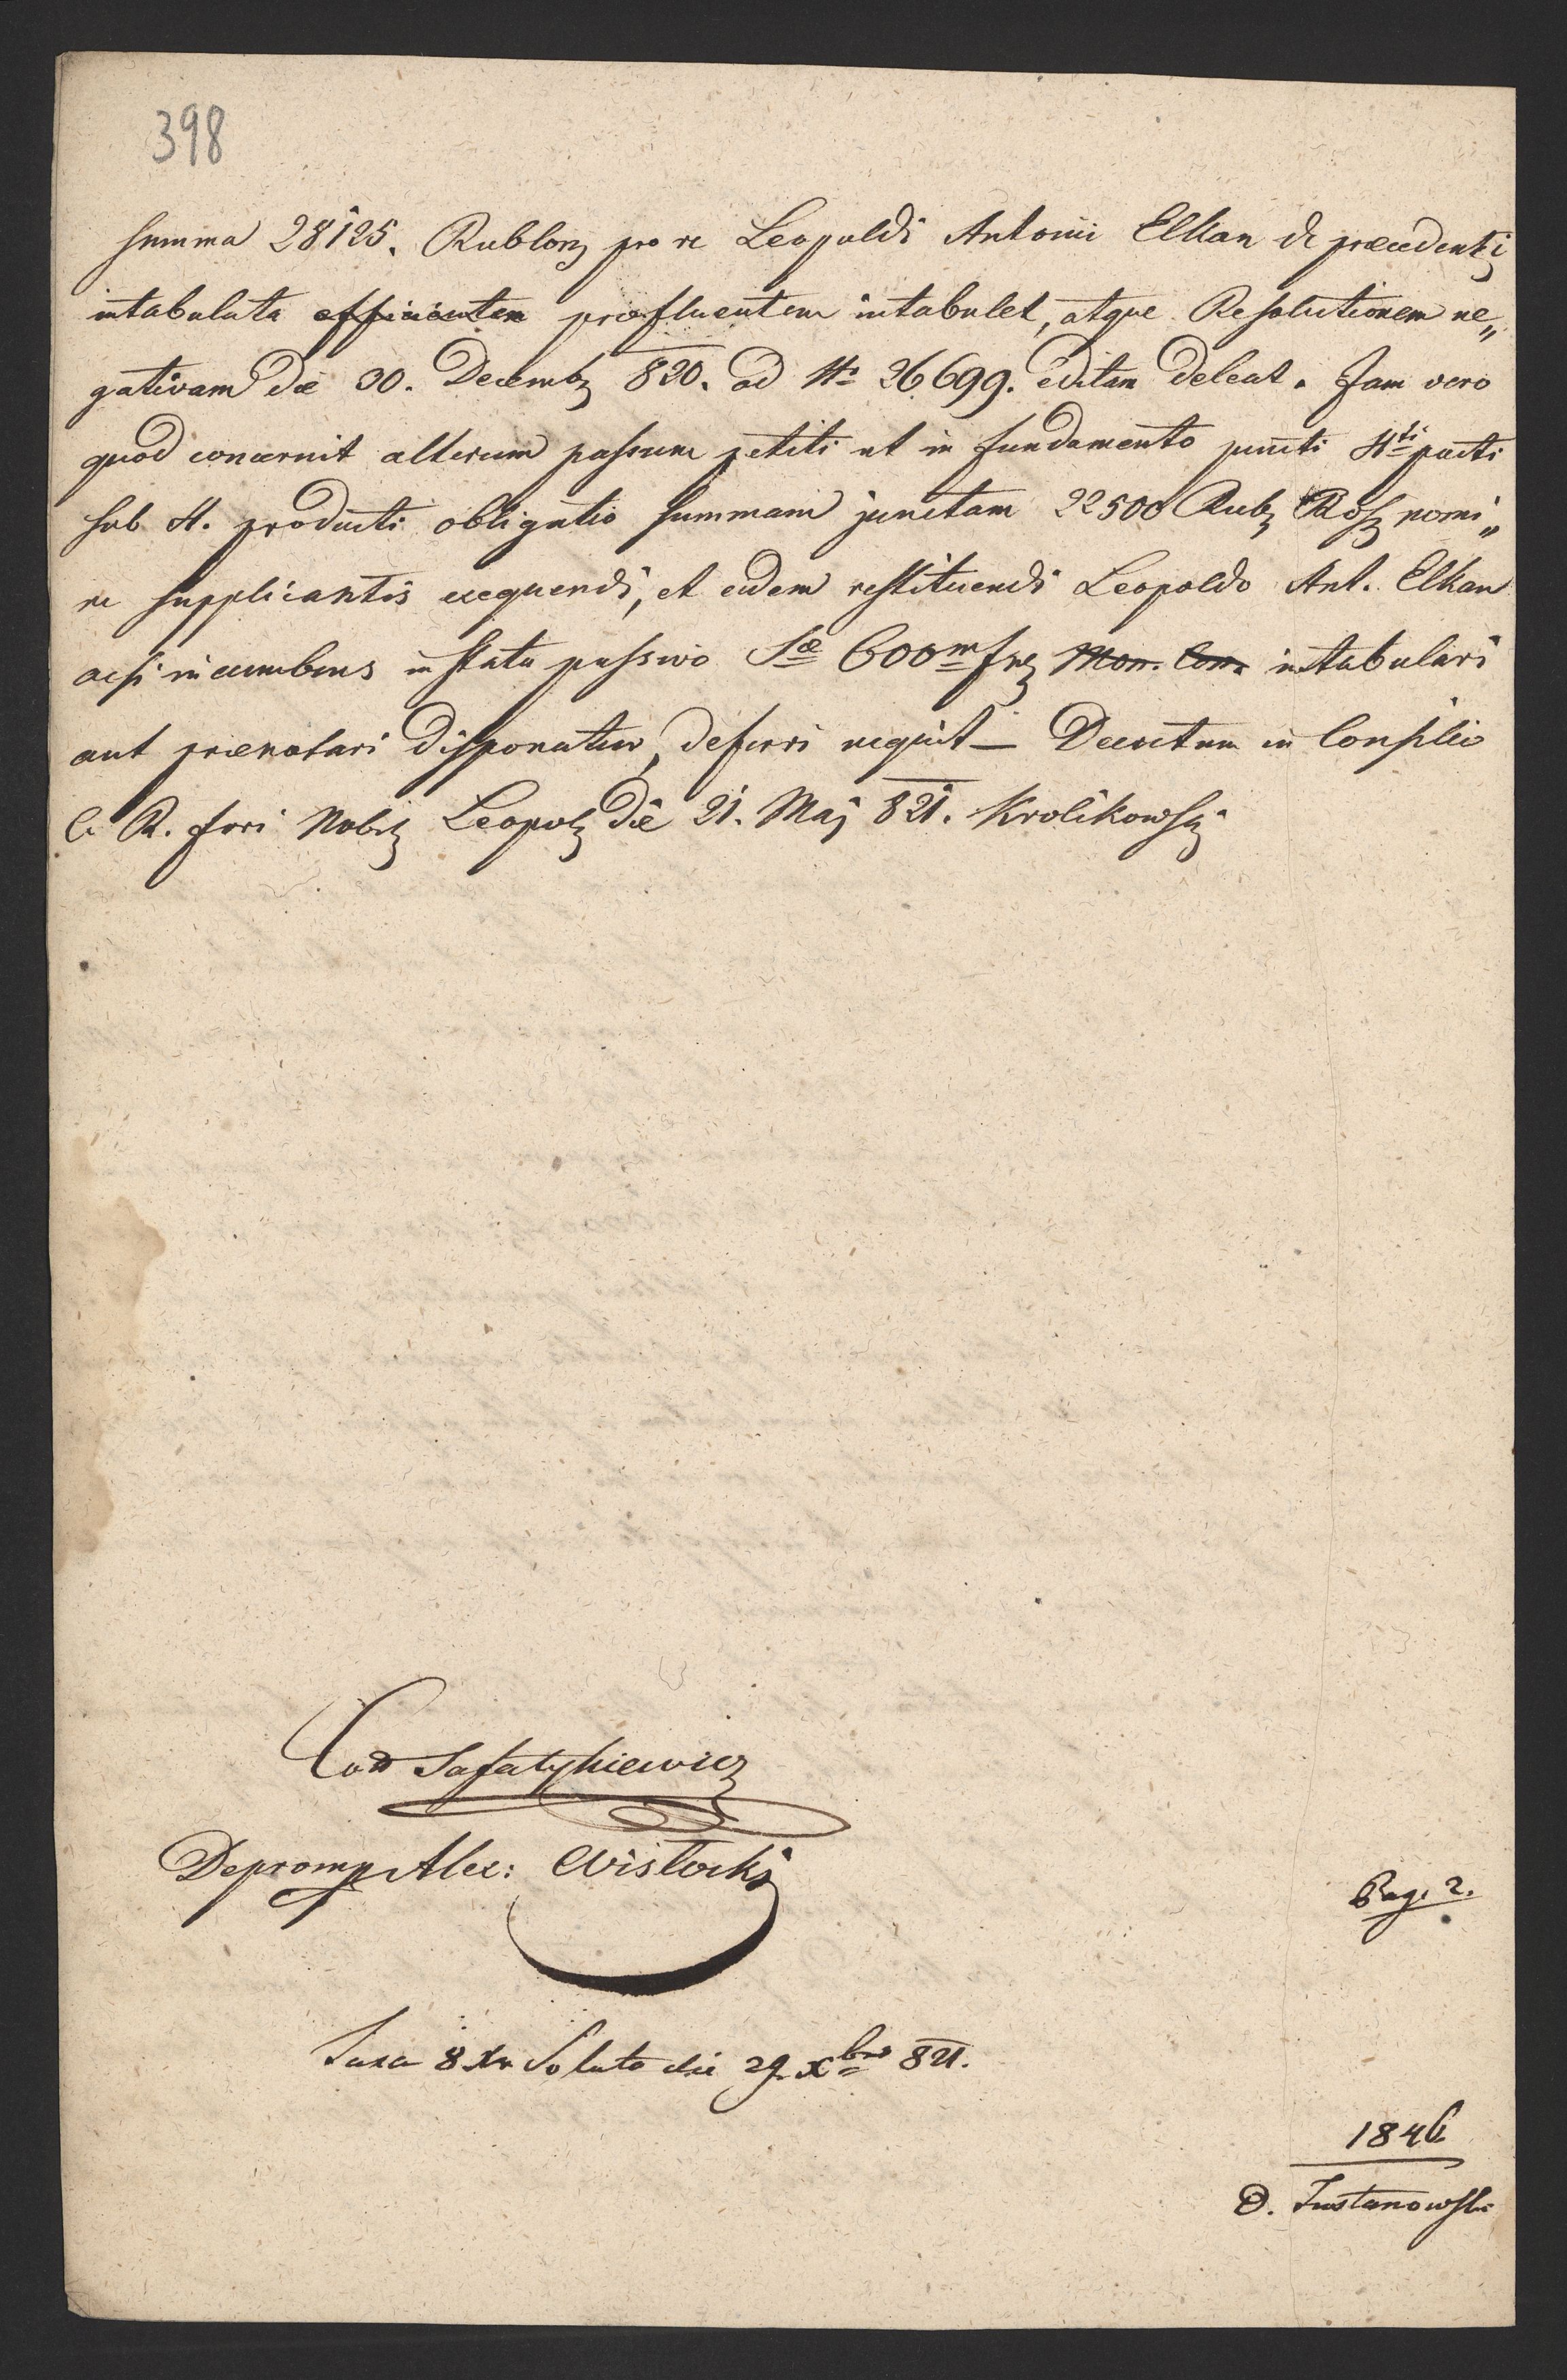 398
summa 28125. Rublorz pro re Leopoldi Antonii Elkan de præcedenti
intabulata efficientem præfluentem intabulet, atque Resolutionem ne„
gativam die 30. Decembz 820. ad No 26699. editam deleat. Jam vero
quod concernit alterum passum petiti ut in fundamento puncti 4ti pacti
sub A. producti obligatio summam junctam 22500 Rubz Rossz nomi„
ne supplicantis exequendi, et eidem restituendi Leopoldo Ant. Elkan
acsi incumbens in statu passivo Sæ 600m frz Mon. Con. intabulari
aut prænotari disponatur, deferri nequit — Decretum in Consilio
C. R. Fori Nobz Leopolz die 21. Maj 821. Krolikowski
Depromp Alex: Wisłocki
Pag. 2.
Taxa 8 xr Soluta die 29 xbris 821.
1846